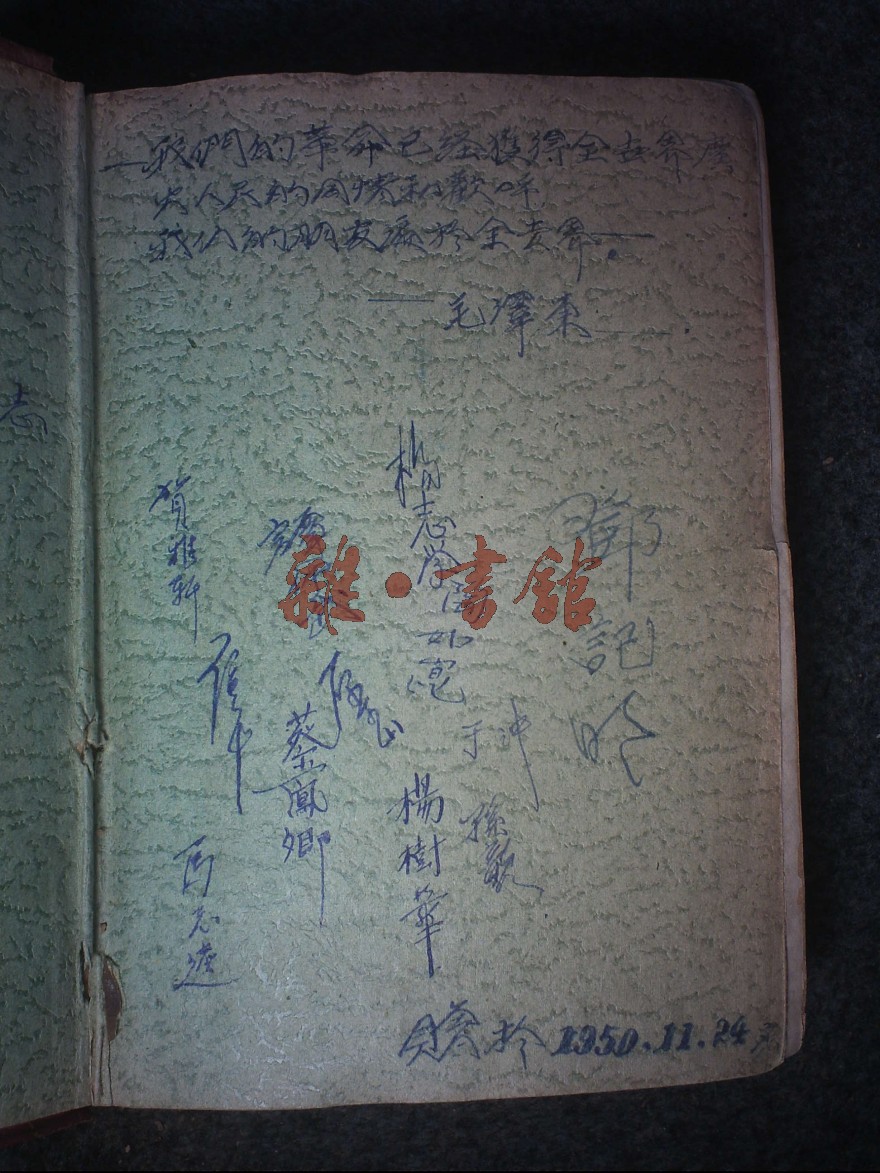 我們的革命已经獲得全世界廣
大人民的同情和歡呼
我们的朋友遍於全世界.
—— 毛澤東
鄧記明
楊志学
于冲
孫毅
楊樹華
蔡鳳卿
賀雅軒
馬志遠
贈於 1950.11.24
志
雜·書館